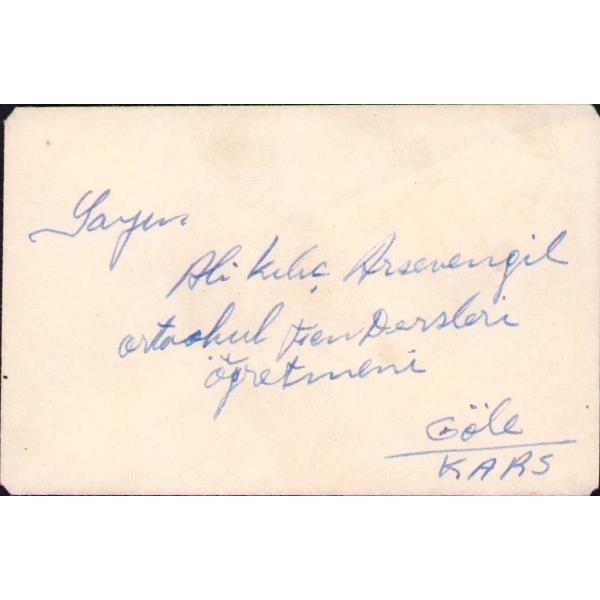 Sayın
Ali Kılıç Arsevengil
ortaokul Fen Dersleri
öğretmeni
Göle
KARS